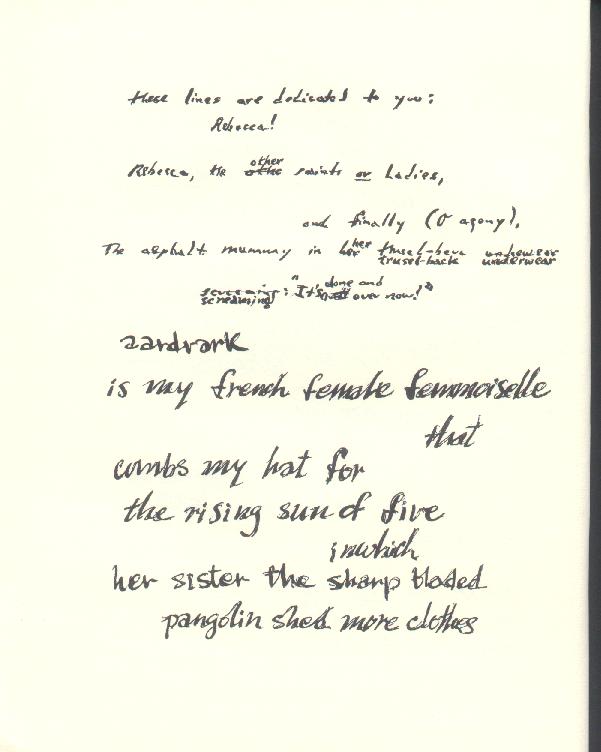 these lines are dedicated to you:
Rebecca!
Rebecca, the other saints or Ladies,
and finally (O agony),
The asphalt mummy in her trusst-back underwear
screaming: "It's done and over now!"
aardvark
is my french female femmoiselle
that
combs my hat for
the rising sun of five
inwhich
her sister the sharp bladed
pangolin shed more clothes